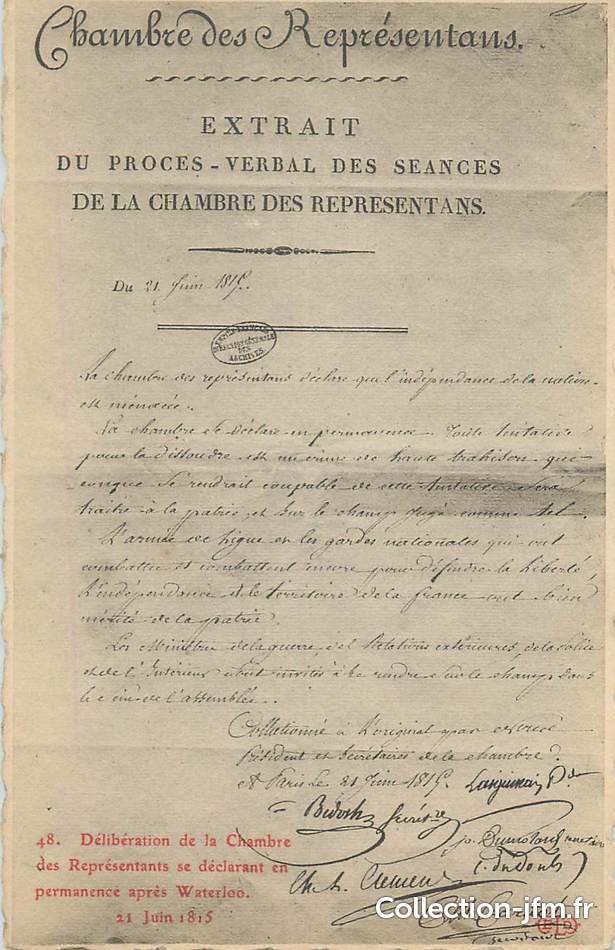 Chambre des Représentans.
EXTRAIT
DU PROCES-VERBAL DES SEANCES
DE LA CHAMBRE DES REPRESENTANS.
Du 21 Juin 1815.
ARCHIVES
La chambre des représentans déclare que l'indépendance de la nation
est ménacée.
La chambre se déclare en permanence. Toute tentative
pour la dissoudre est un crime de haute trahison; qui-
conque se rendrait coupable de cette tentative sera
traitre à la patrie et sur le champ jugé comme tel.
L'armée de ligne et les gardes nationales qui ont
combattu et combattent encore pour défendre la liberté,
l'indépendance et le territoire de la france ont bien
mérité de la patrie.
Les Ministres de la guerre, des Relations extérieures, de la Police
et de l'Interieur sont invités à se rendre sur le champ dans
le sein de l'assemblée.
Collationné à l'original par nous
Président et Secrétaires de la chambre.
A Paris Le 21 Juin 1815. Lanjuinais Pt
Bedoch Secrétre
Dumolard secrétaire
(du Doubs)
Clément
secretaire
48. Délibération de la Chambre
des Représentants se déclarant en
permanence après Waterloo.
21 Juin 1815
Collection-jfm.fr